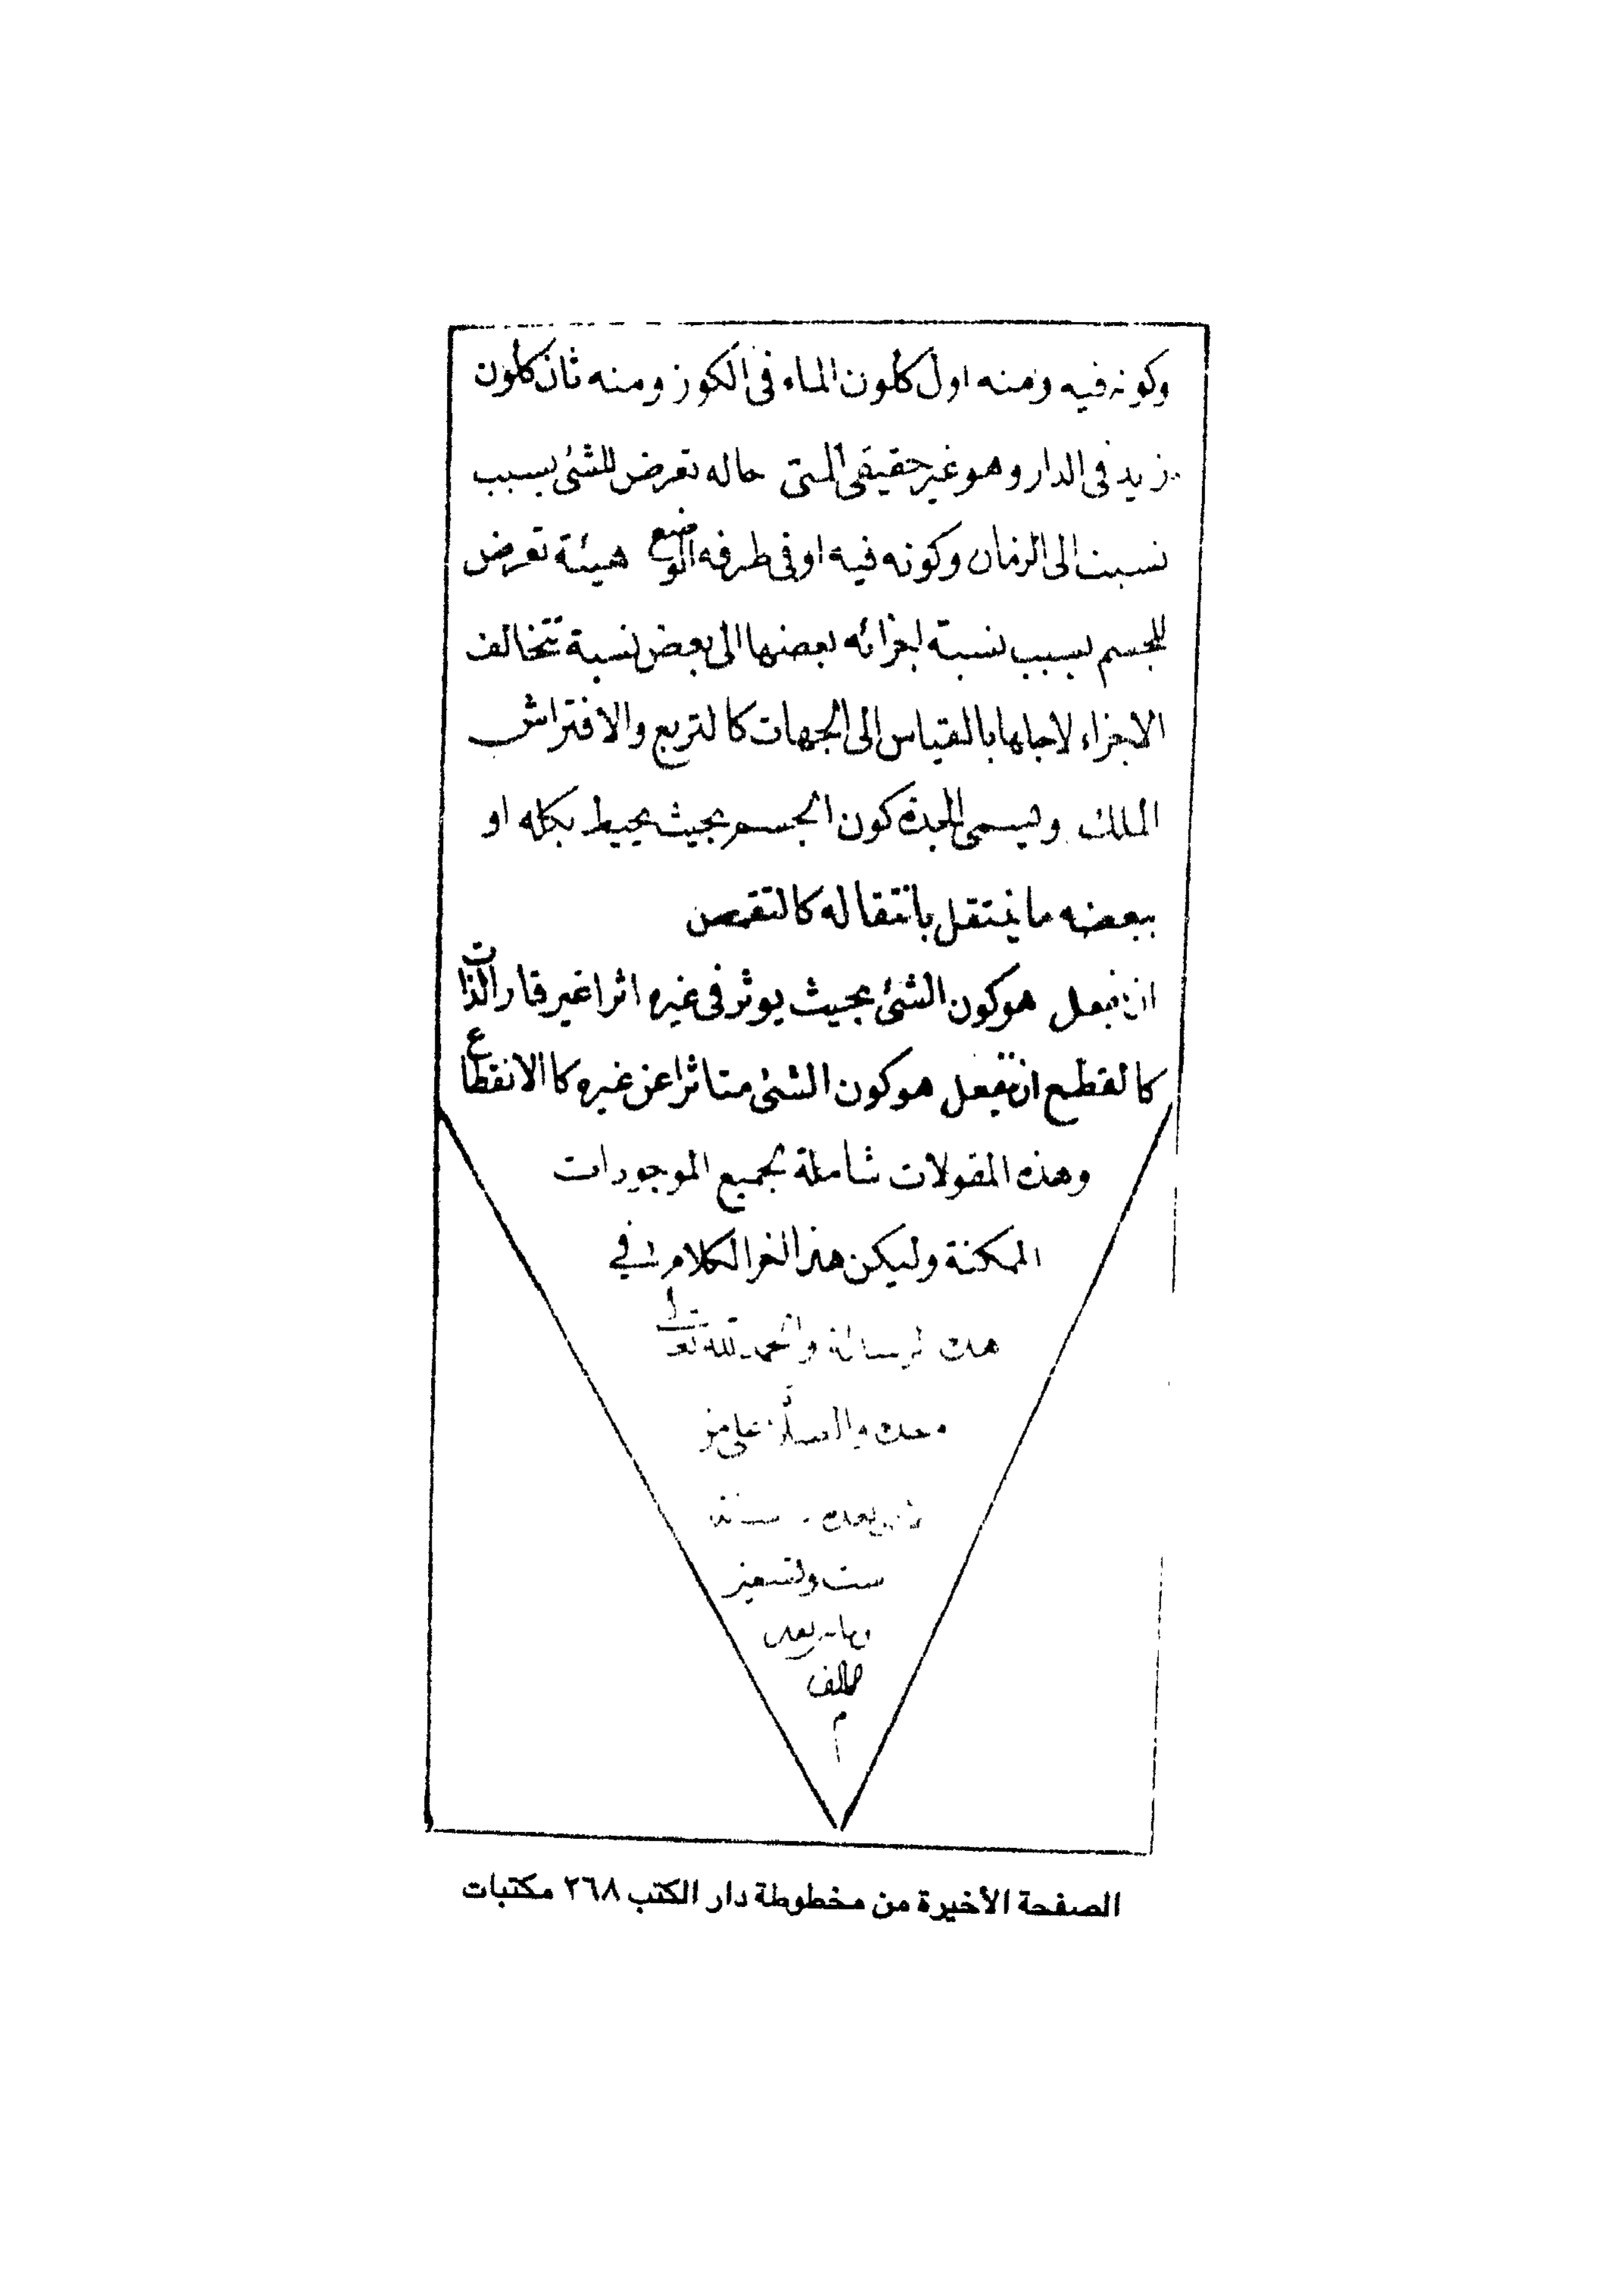 وكونه فيه ومنه اول ككون الماء فى الكوز ومنه ثان ككون
زيد فى الدار وهو غير حقيقى المتى حاله تعرض للشئ بسبب
نسبت الى الزمان وكونه فيه او فى طرفه الوضع هيئة تعرض
للجسم بسبب نسبة اجزائه بعضها الى بعض نسبة تتخالف
الاجزاء لاجلها بالقياس الى الجهات كالتربع والافتراش
الملك ويسمى الجدة كون الجسم بحيث يحيط بكله او
ببعضه ما ينتقل بانتقاله كالتقمص
ان يفعل هو كون الشئ بحيث يوثر فى غيره اثرا غير قار الذات
كالقطع ان ينفعل هو كون الشئ متاثرا عن غيره كا الانقطاع
وهذه المقولات شاملة لجميع الموجودات
الممكنة وليكن هذا اخر الكلام فى
هذه الرسالة والحمد لله تعالى
وحده والصلاة على من
بعده سنة
ست وتسعين
بعد
الالف
م
الصفحة الأخيرة من مخطوطة دار الكتب ٢٦٨ مكتبات